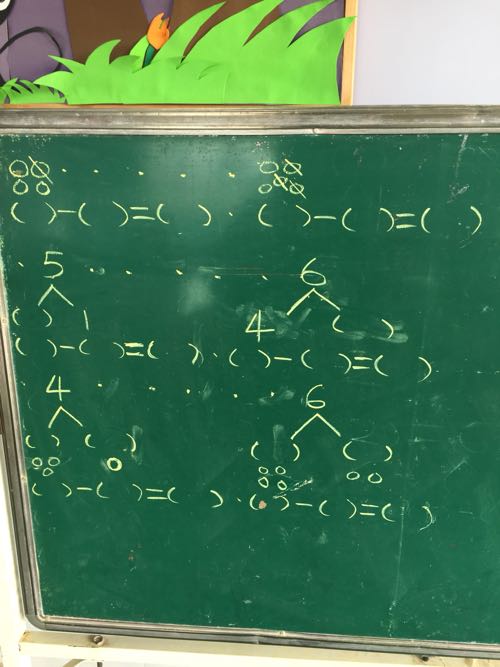 ( )-( )=( ) · ( )-( )=( )
5 6
( ) 1 4 ( )
( )-( )=( ) · ( )-( )=( )
4 6
( ) ( ) ( ) ( )
( )-( )=( ) · ( )-( )=( )